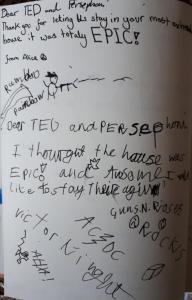 Dear TED and Persephone
Thank you for letting us stay in your most awesome
house it was totaly EPIC!
from Alice
Dear TED and PERSephone
I thought the house was
EPIC! and Ausome I would
like to stay There again
Guns.N.Roses
@ROCKS
AC DC
VICTor